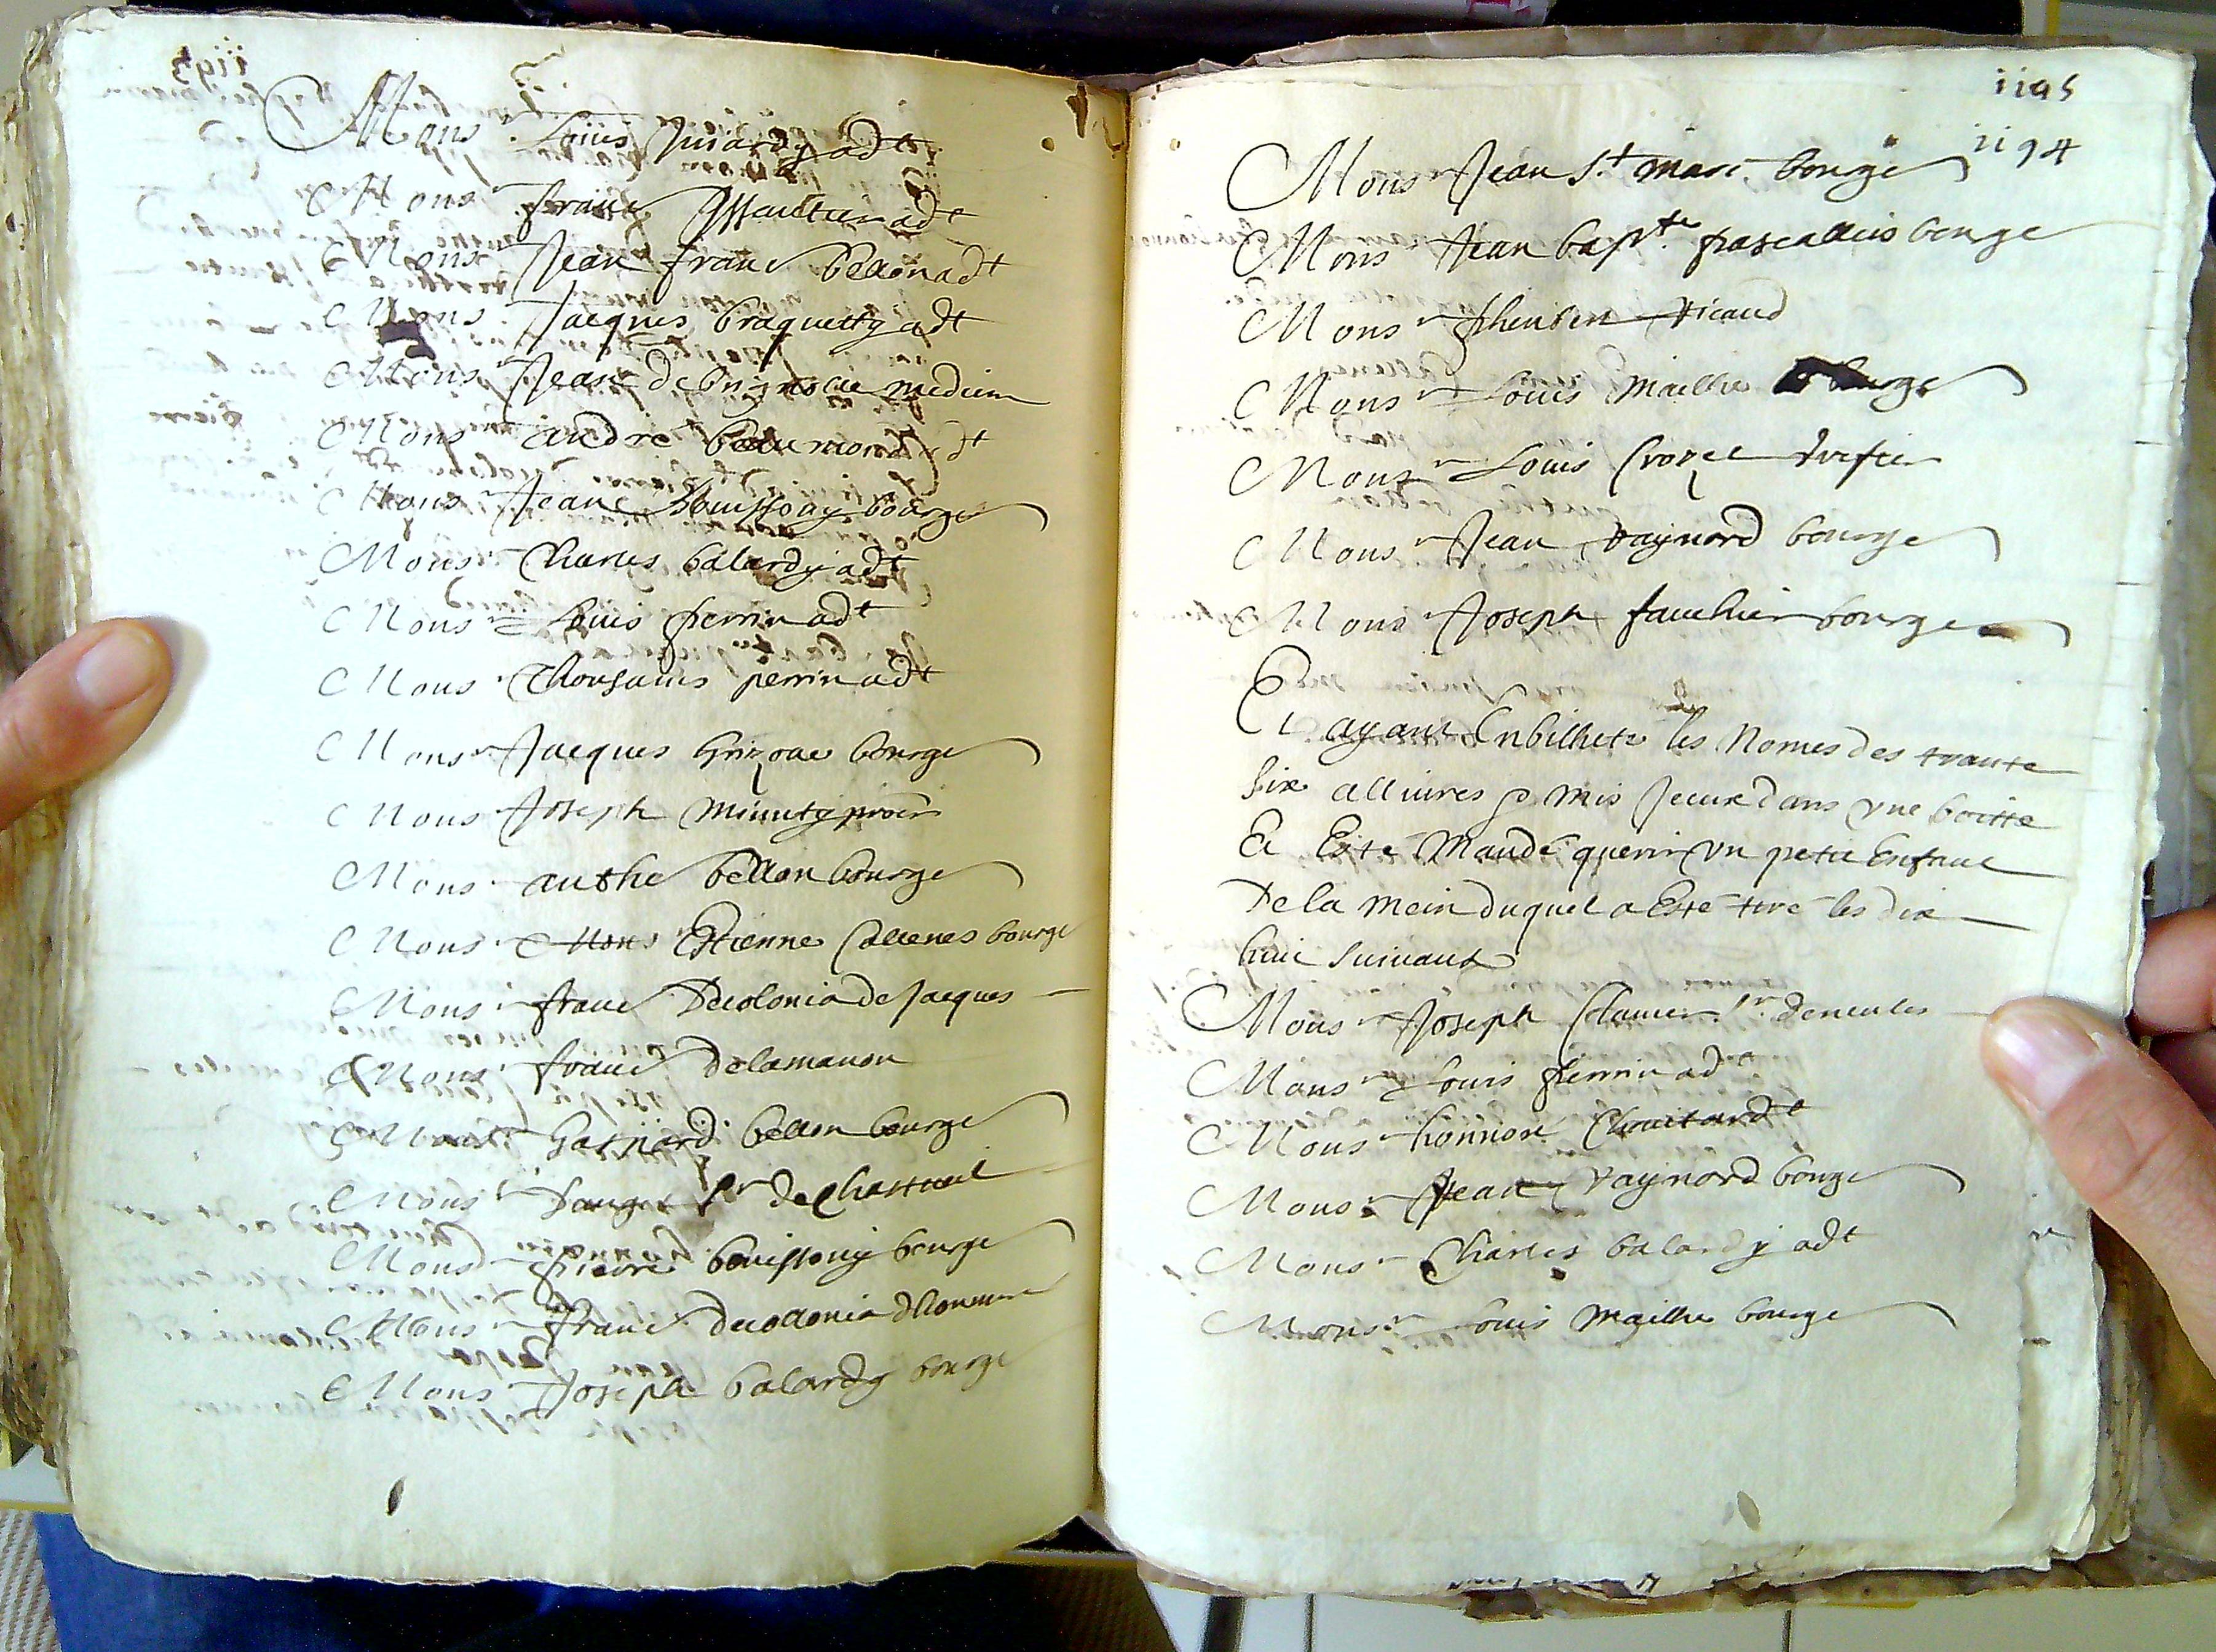 Mons.r Louis adt
Mons.r franc adt
Mons.r Jean franc bellon adt
Mons.r Jacques braquetty adt
Mons.r Jean debrignolle medicin
Mons.r andre beaumond adt
Mons.r Jean bouissony bourge
Mons.r Charles balardy adt
Mons.r Louis perrin adt
Mons.r perrin adt
Mons.r Jacques Grizolle bourge
Mons.r Joseph Minuty
Mons.r anthe bellon bourge
Mons.r Mons Estienne bourge
Mons.r franc Decolonia de Jacques
Mons.r franc delamanon
Mons.r Gaspard bellon bourge
Mons.r Sr de Chasteuil
Mons.r pierre bouissony bourge
Mons.r franc decollonia
Mons.r Joseph balardy bourge
1195
1194
Mons.r Jean St marc bourge
Mons.r Jean bapte pascallis bourge
Mons.r ricaud
Mons.r Louis Mailhe bourge
Mons.r Louis Croze
Mons.r Jean raynord bourge
Mons.r Joseph fauchier bourge
Et ayant Enbilhete les Nomes des trante
six allivres mis Jceux dans vne boitte
Et Este Mande querir vn petit Enfant
De la mein duquel a Este tire les dix
huit suivants
Mons.r Joseph Sr
Mons.r Louis perrin adt
Mons.r honnore
Mons.r Jean raynord bourge
Mons.r Charles balardy adt
Mons.r Louis Mailhe bourge